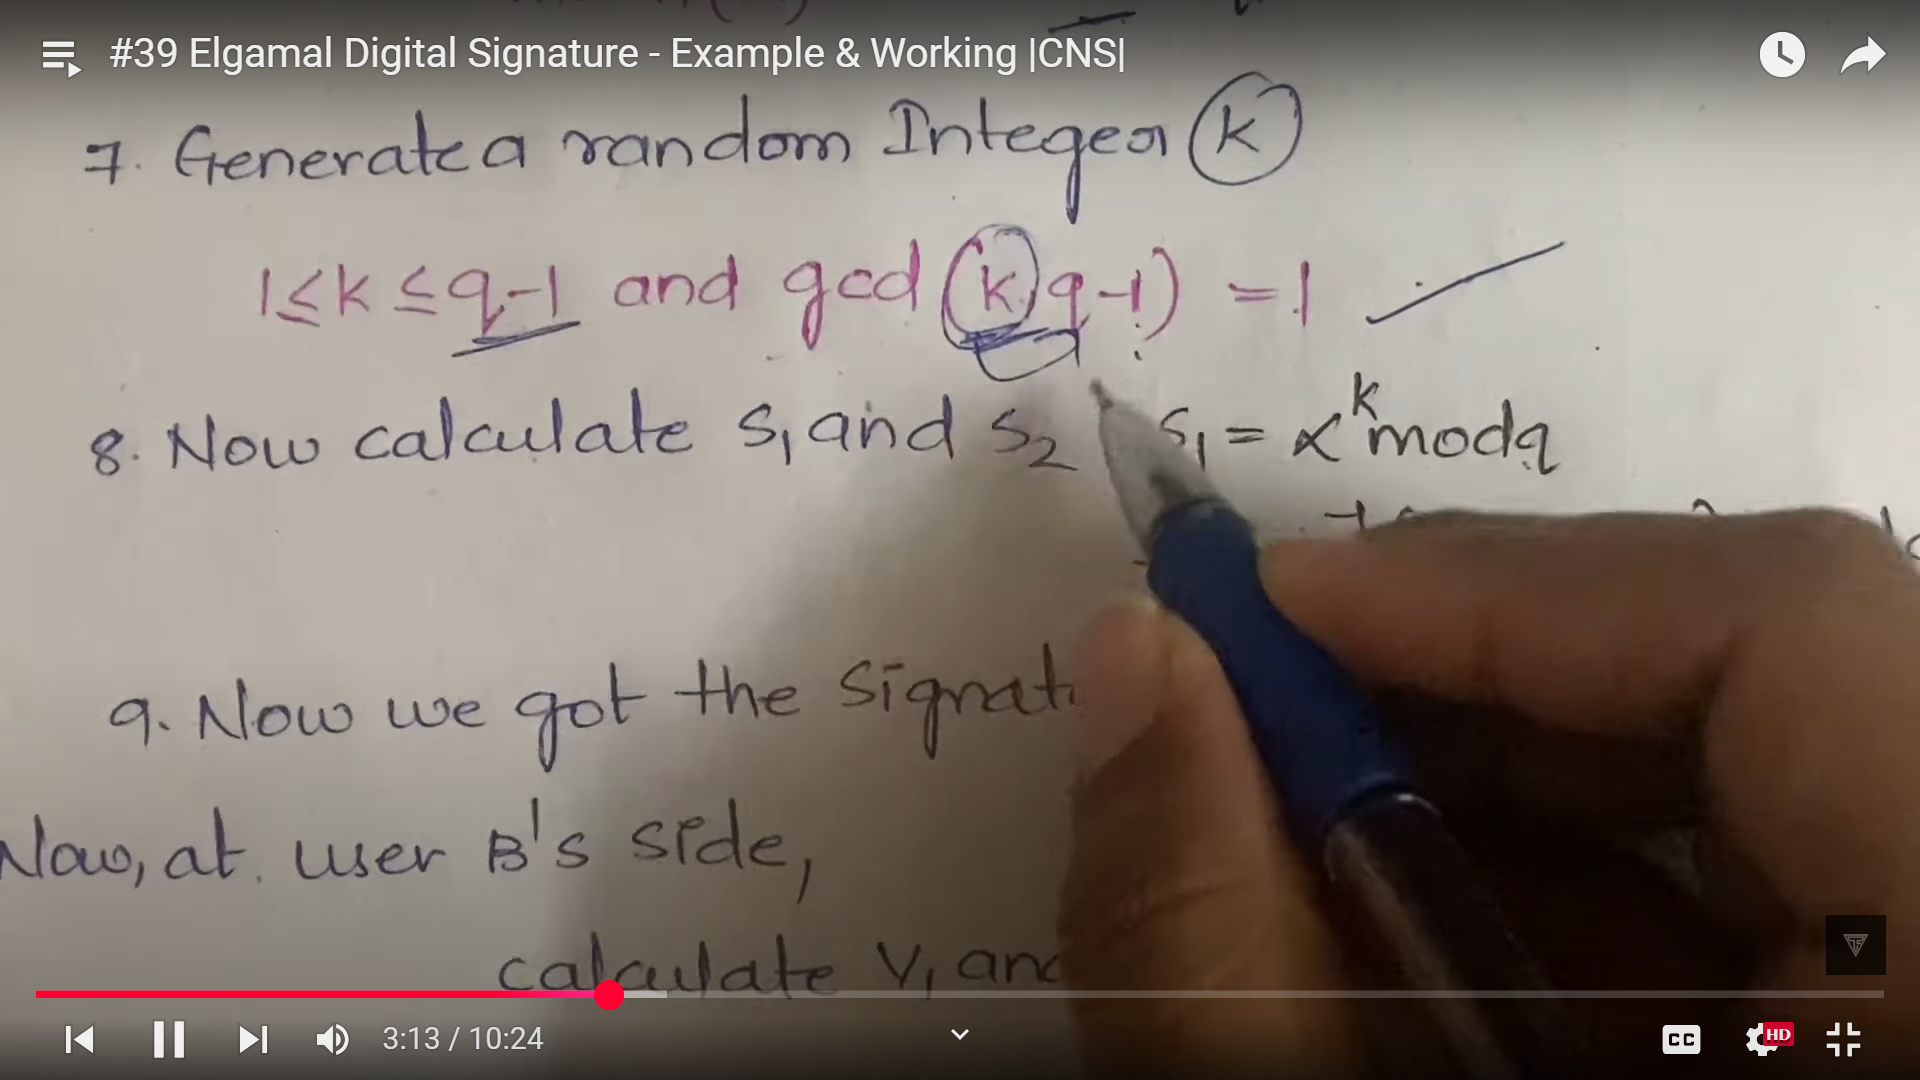 #39 Elgamal Digital Signature - Example & Working |CNS|
7. Generate a random Integer k
1≤k≤q-1 and gcd (k, q-1) = 1
8. Now calculate S₁ and S₂ S₁ = α^k mod q
9. Now we got the signat
Now, at user B's side,
calculate V₁ and
3:13 / 10:24
CC
HD